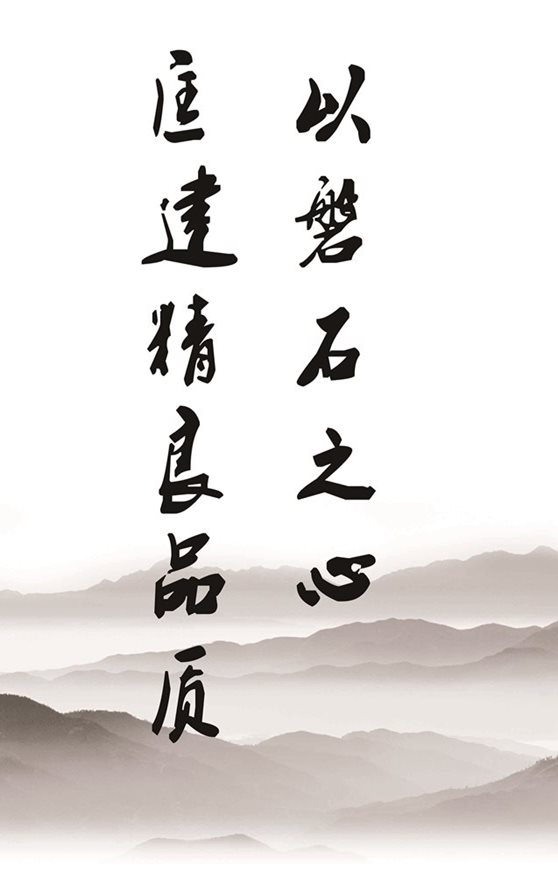 以磐石之心
匠建精良品质